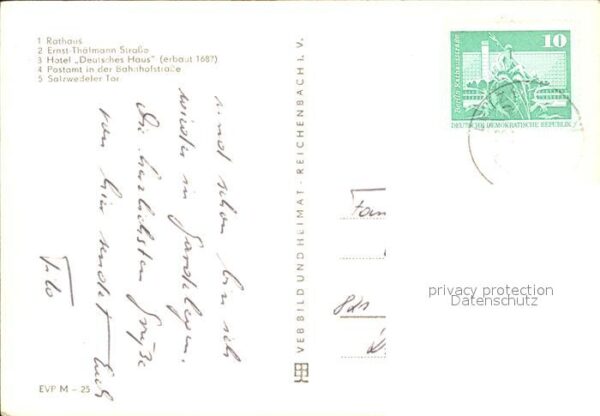 1 Rathaus
2 Ernst-Thälmann Straße
3 Hotel „Deutsches Haus" (erbaut 1687)
4 Postamt in der Bahnhofstraße
5 Salzwedeler Tor
und schon bin ich
wieder in Gardelegen.
Die herzlichsten Grüße
von hier sendet Euch
Tilo
EVP M – 25
VEB BILD UND HEIMAT · REICHENBACH I. V.
Berlin Rathausstraße
10
DEUTSCHE DEMOKRATISCHE REPUBLIK
Fam
privacy protection
Datenschutz